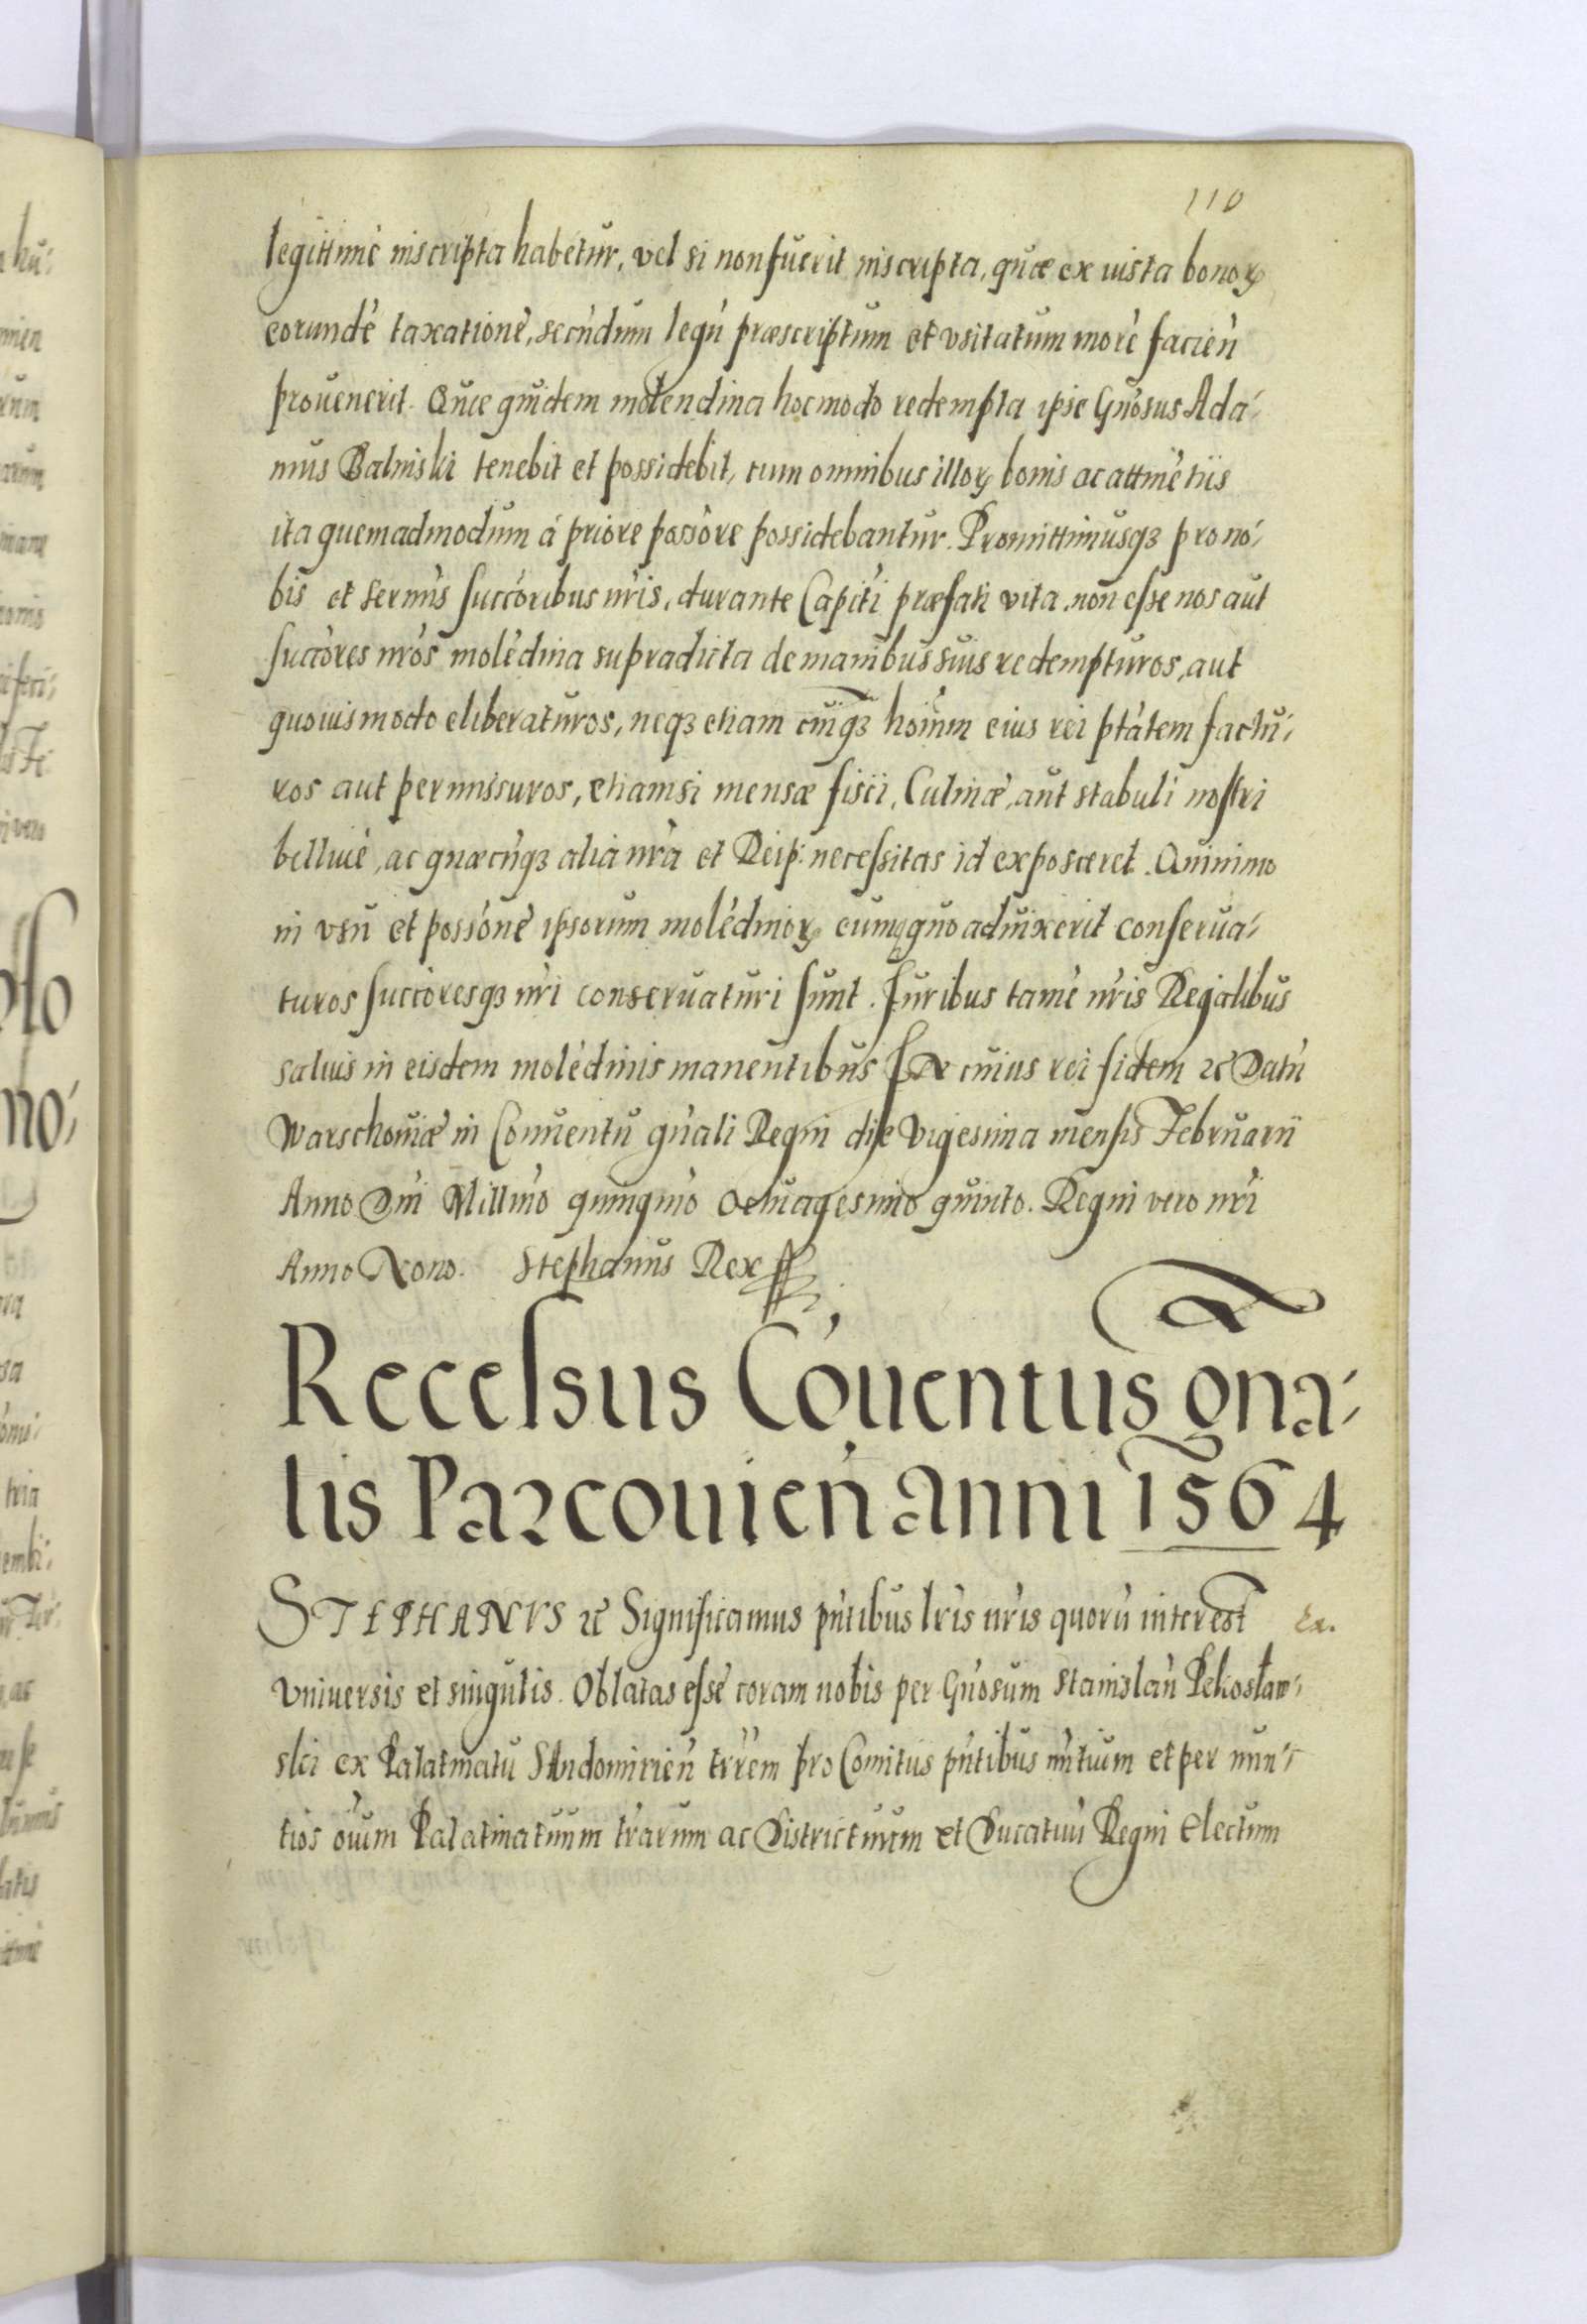 110
legittimè inscripta habetur, vel si non fuerit inscripta, quæ ex iusta bonoꝝ
eorundē taxationē, secūdum legū præscriptum et vsitatum morē facień
prouenerit. Quæ quidem molendina hoc modo redempta ipse Gńosus Ada-
mus Balinski tenebit et possidebit, cum omnibus illoꝝ bonis ac attinētiis
ita quemadmodum à priore possōre possidebantur. Promittimusqꝫ pro no-
bis et sermis succōribus nr̄is, durante Capiti præfati vita, non esse nos aut
succōres nr̄os molēdina supradicta de manibus suis redempturos, aut
quouismodo eliberaturos, neqꝫ etiam cuiqꝫ hoīnm eius rei ptātem factu-
ros aut permissuros, etiamsi mensæ fisci, Culinæ, aut stabuli nostri
bellicè, ac quæcūqꝫ alia nr̄a et Reip: necessitas id exposceret. Quinimo
in vsu et possōnē ipsorum molēdinoꝝ eumqꝫ quoad uixerit conserua-
turos succōresqꝫ nr̄i conseruaturi sunt. Iuribus tamē nr̄is Regalibus
saluis in eisdem molēdinis manentibus In cuius rei fidem ꝛc Datū
Warschouiæ in Conuentu gn̄ali Regni die Vigesima mensis Februarii
Anno Dn̄i Millmo quingmo Octuagesimo quinto. Regni vero nr̄i
Anno Nono. Stephanus Rex
Recessus Cōuentus gna-
lis Parcouień anni 1564
STEPHANVS ꝛc Significamus pn̄tibus lr̄is nr̄is quorū interest Ex.
Vniuersis et singulis. Oblatas esse coram nobis per Gn̄osum Stanislaū Pekosław-
ski ex Palatinatu Sandomirień trr̄em pro Comitiis pn̄tibus nūtium et per nun-
tios oīum Palatinatuum tr̄arum ac Districtuum et Ducatuū Regni Electum